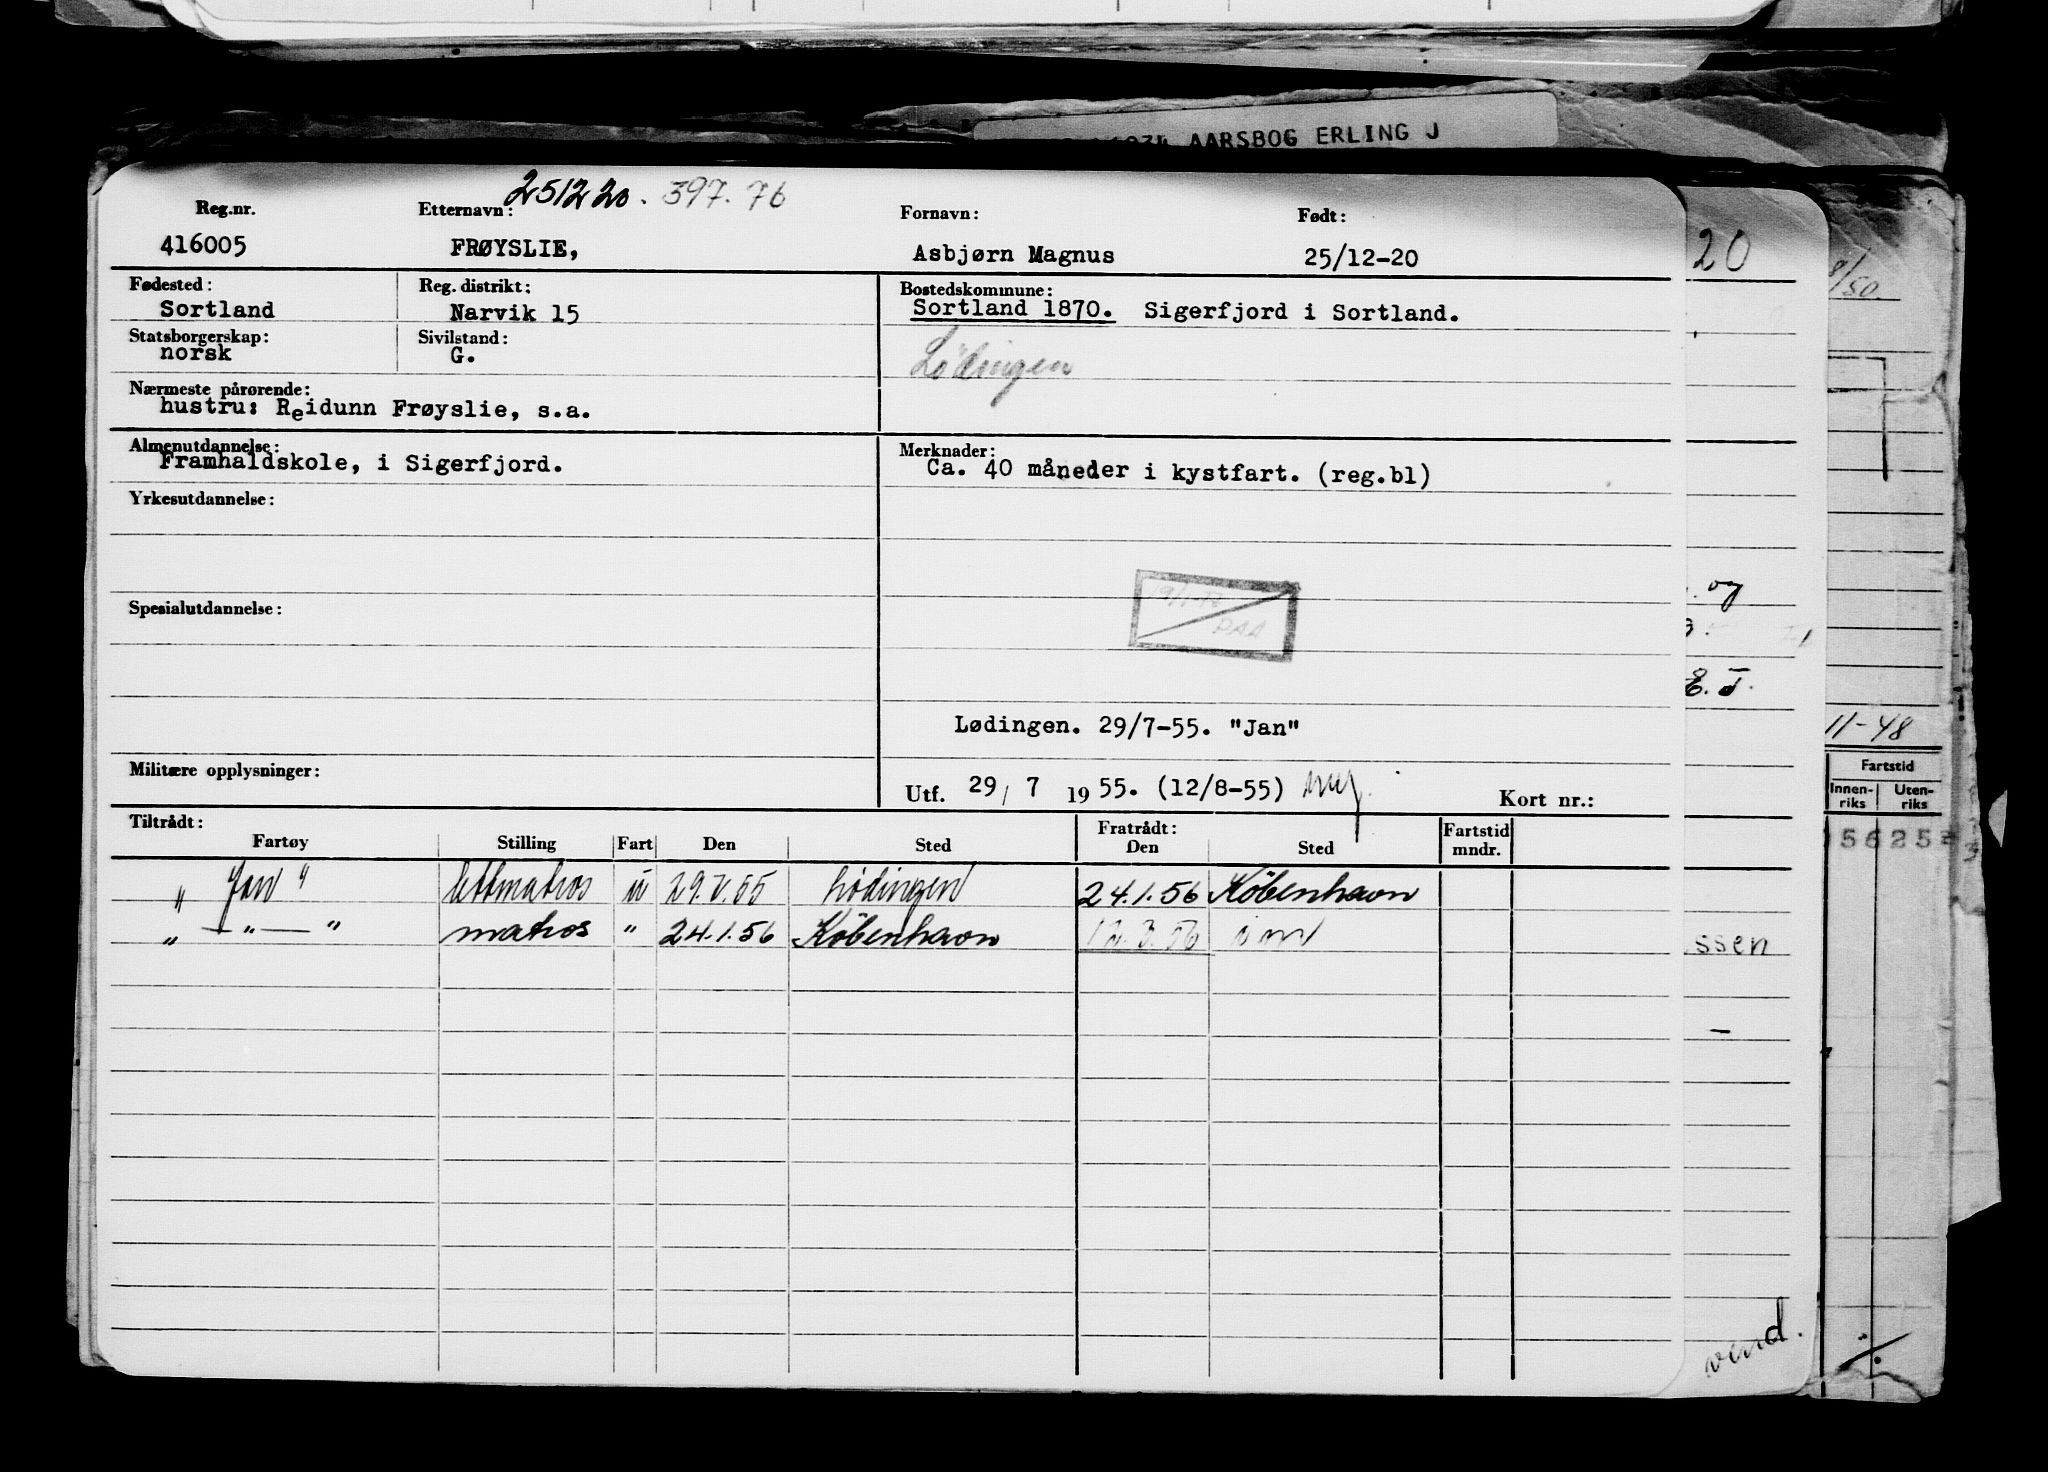 AARSBOG ERLING J
251220. 397.76
Reg.nr. Etternavn: Fornavn: Født:
416005 FRØYSLIE, Asbjørn Magnus 25/12-20
20
Fødested: Reg. distrikt: Bostedskommune:
Sortland Narvik 15 Sortland 1870. Sigerfjord i Sortland.
8/50.
Statsborgerskap: Sivilstand:
norsk G. Lødingen
Nærmeste pårørende:
hustru: Reidunn Frøyslie, s.a.
Almenutdannelse: Merknader:
Framhaldskole, i Sigerfjord. Ca. 40 måneder i kystfart. (reg.bl)
Yrkesutdannelse:
og
Spesialutdannelse:
PAA
E. J.
Lødingen. 29/7-55. "Jan"
11-48
Militære opplysninger:
Utf. 29/ 7 1955. (12/8-55) Kort nr.:
Fartstid
Innen-riks Uten-riks
Tiltrådt: Fratrådt: Fartstid mndr.
Fartøy Stilling Fart Den Sted Den Sted
56252
" Jan " lettmatros u 29.V.55 Lødingen 24.1.56 København
" — " — " matros " 24.1.56 København 12.3.56
ssen
vend.